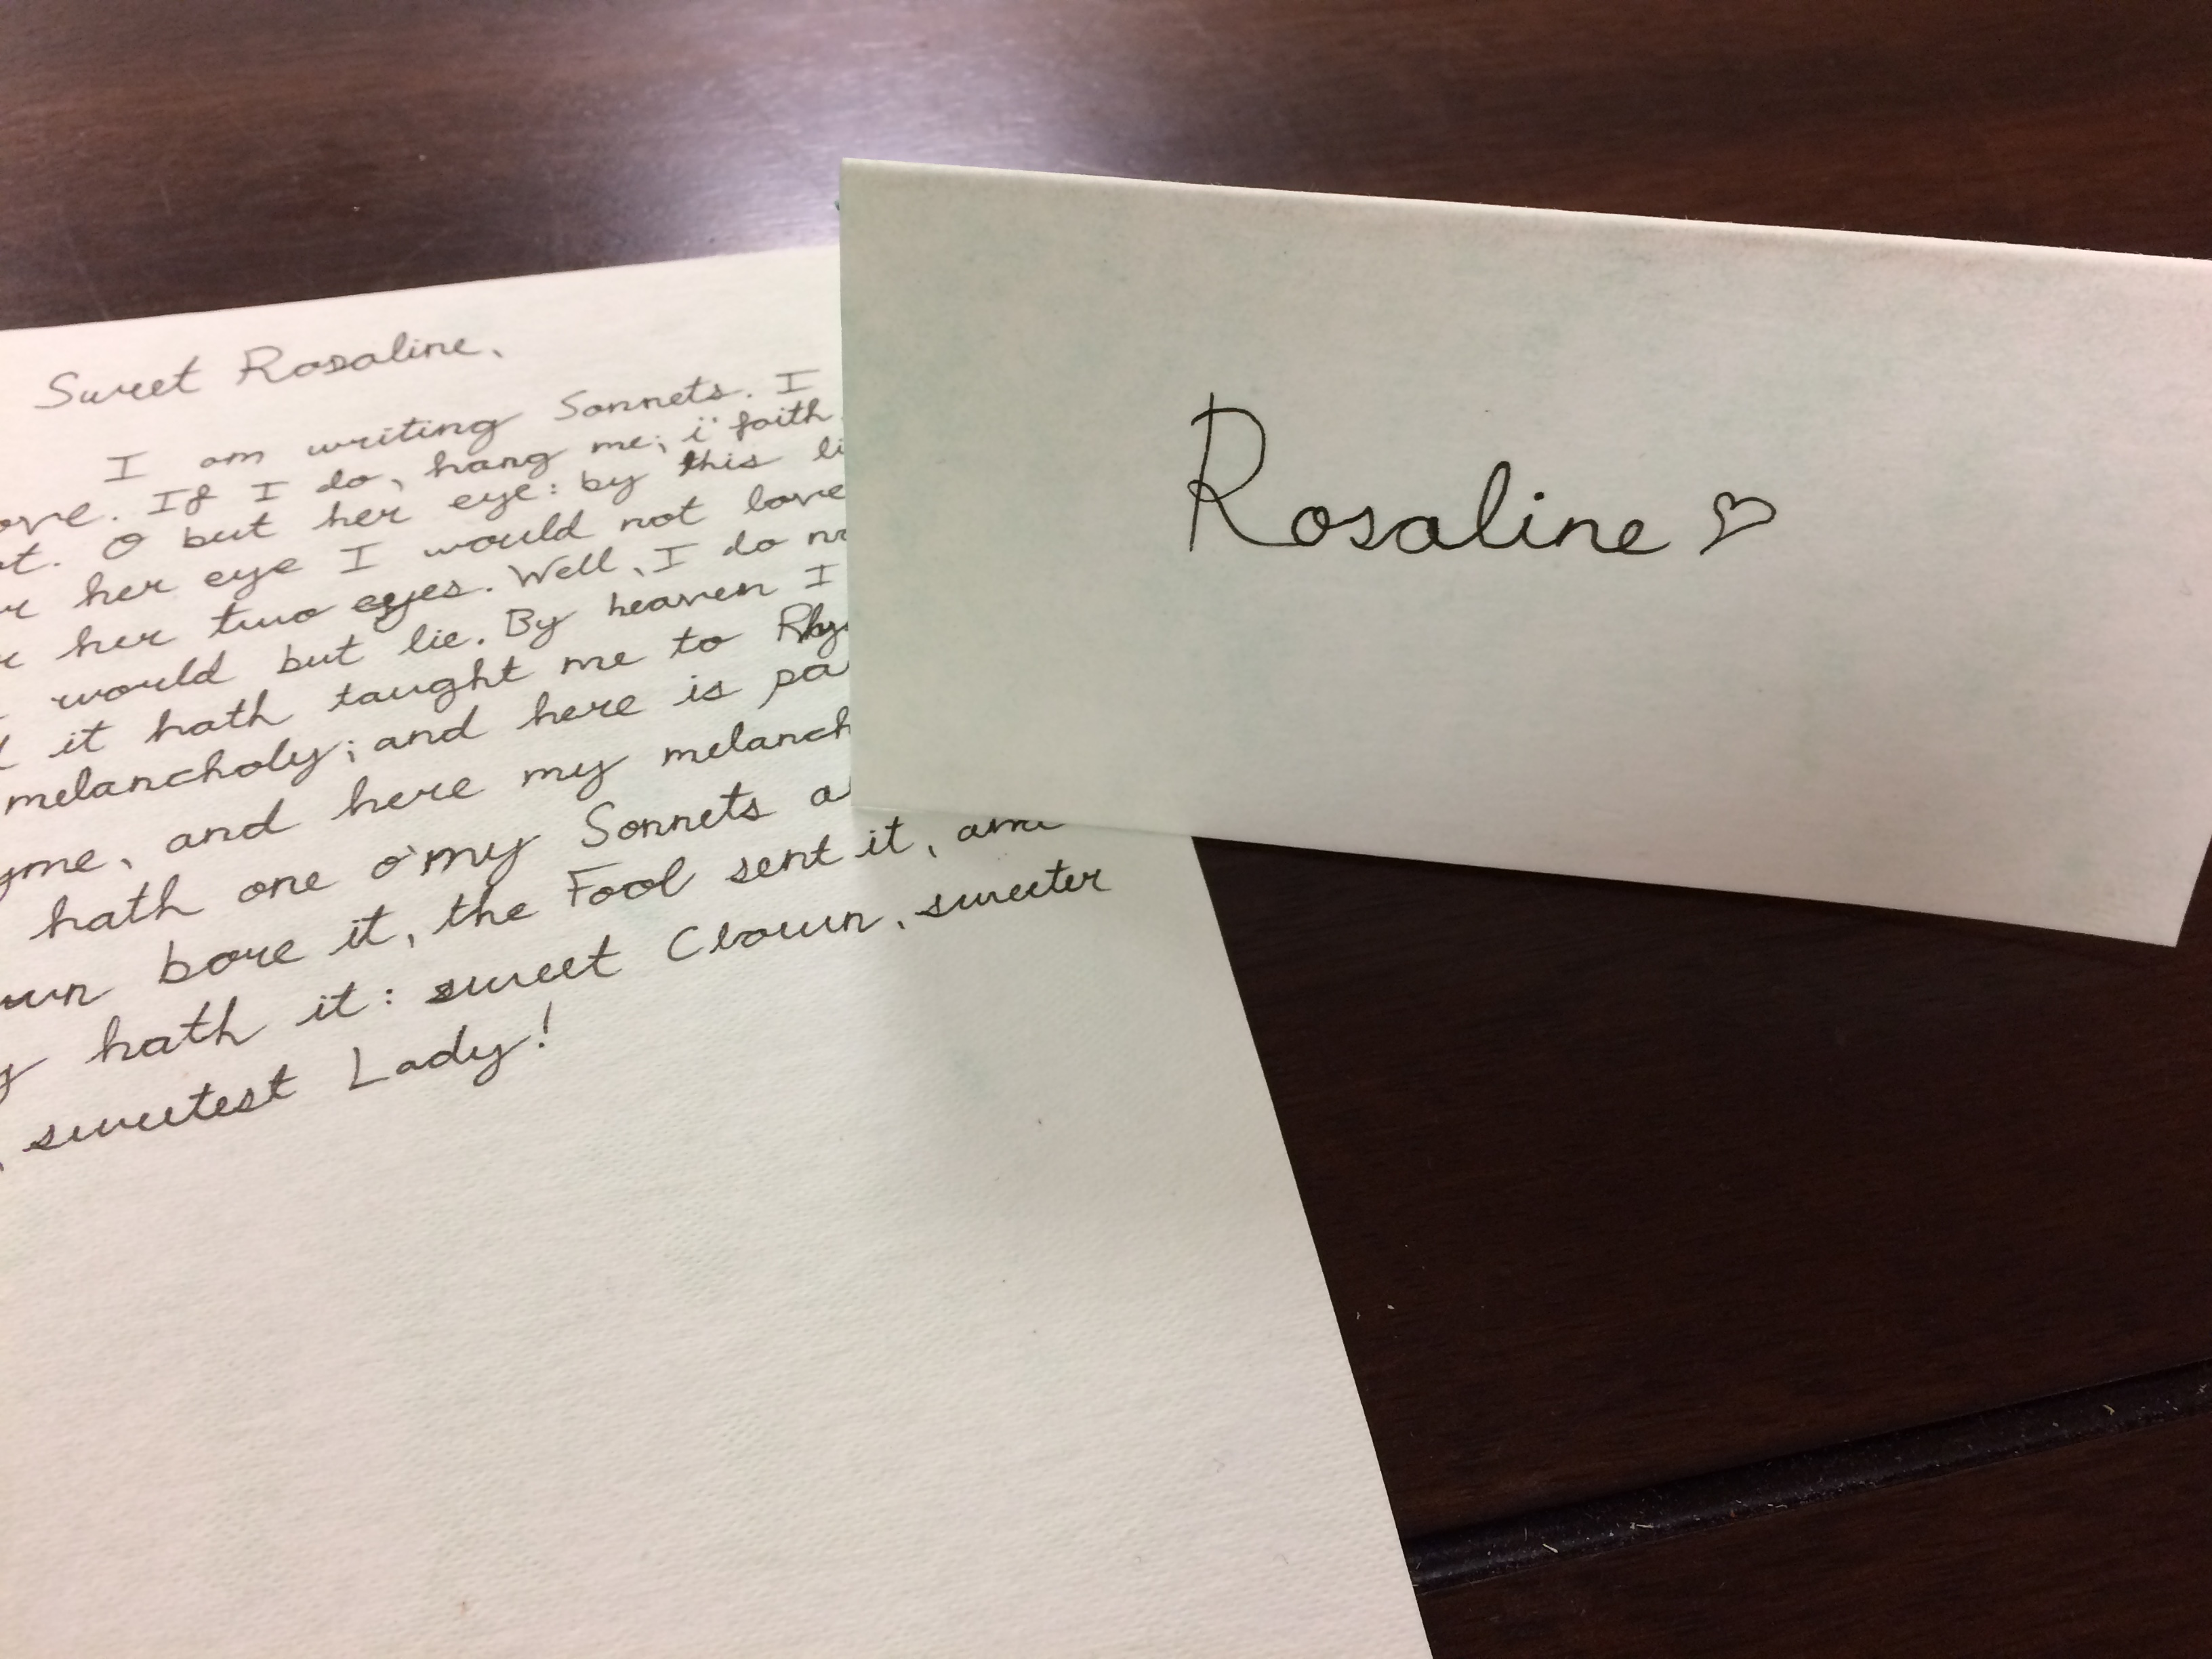 Sweet Rosaline,
I am writing Sonnets. I
ove. If I do, hang me; i' faith
t. O but her eye: by this li
r her eye I would not love
her two eyes. Well, I do n
world but lie. By heaven I
it hath taught me to Rhy
melancholy; and here is pa
yme, and here my melanch
hath one o' my Sonnets a
wn bore it, the Fool sent it, and
y hath it: sweet Clown, sweeter
, sweetest Lady!
Rosaline ♡